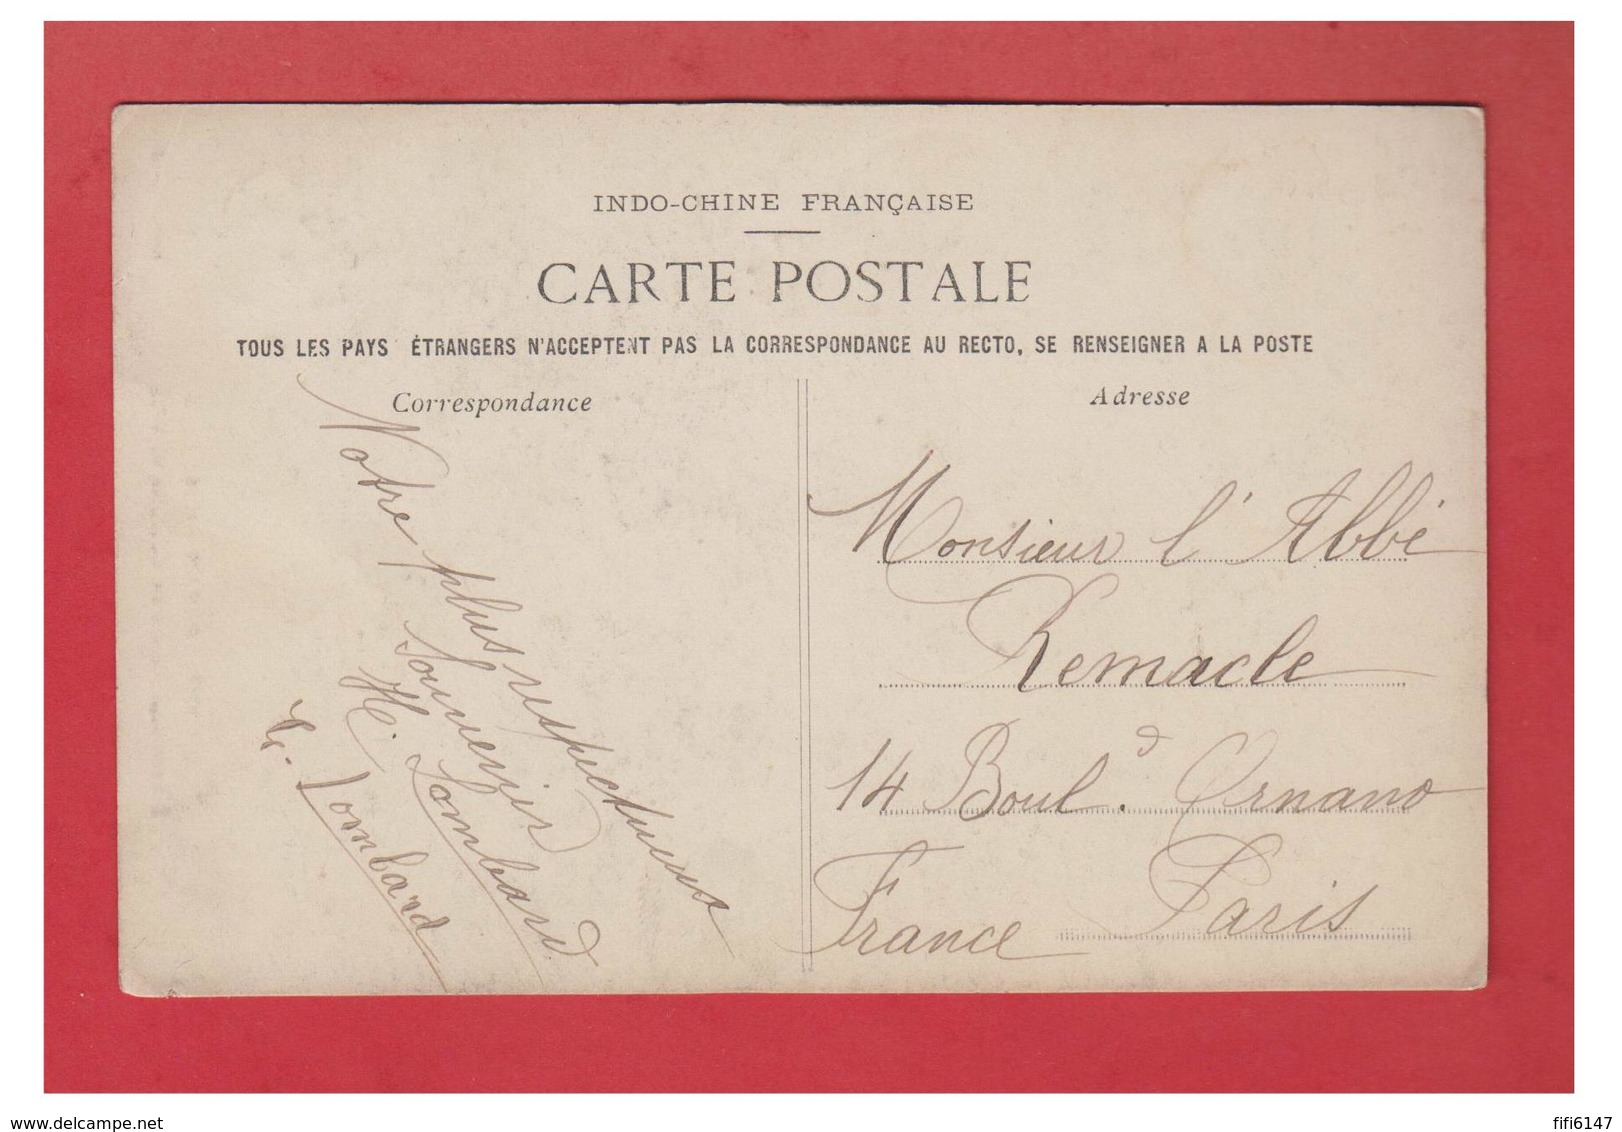 INDO-CHINE FRANÇAISE
CARTE POSTALE
TOUS LES PAYS ÉTRANGERS N'ACCEPTENT PAS LA CORRESPONDANCE AU RECTO, SE RENSEIGNER A LA POSTE
Correspondance
Notre plus respectueux
Souvenir
H. Lombard
Lombard
Adresse
Monsieur l'Abbé
Remacle
14 Boul.d Ornano
France Paris
www.delcampe.net
fifi6147